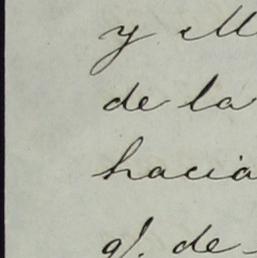 y M
de la
hacia
qᵉ. de